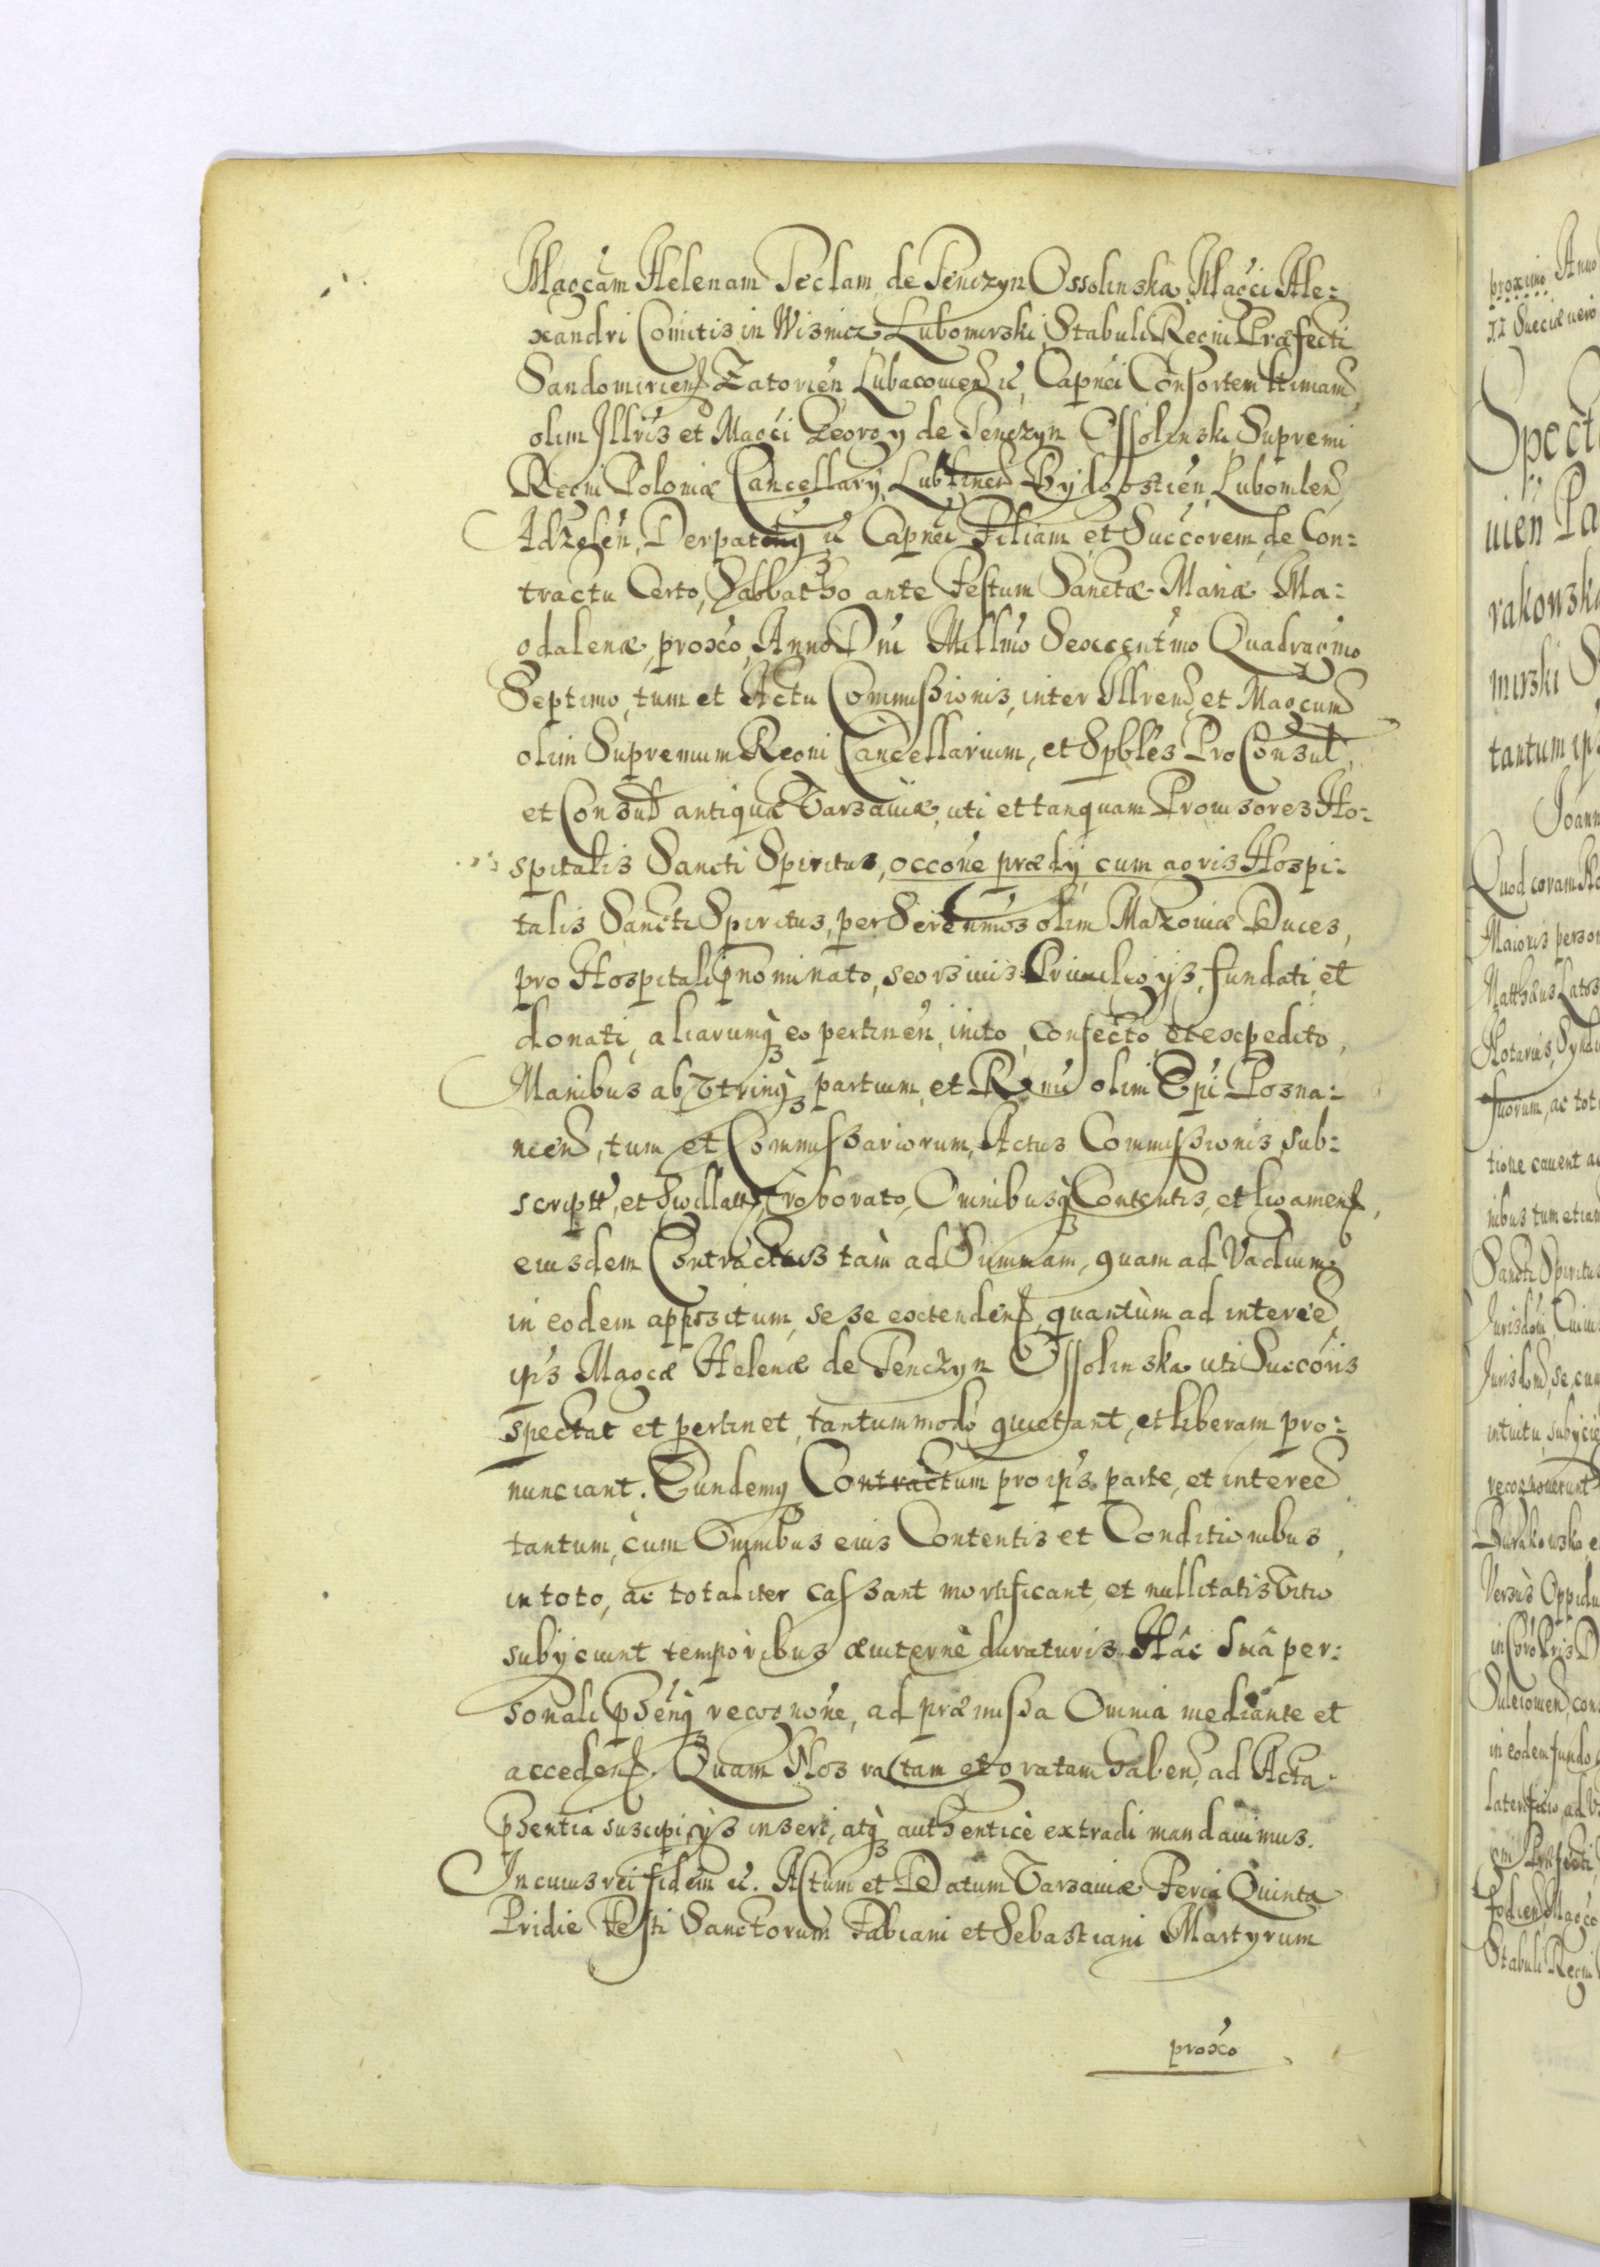 Magcam Helenam Teclam de Tenczyn Ossolinska, Magci Ale:
xandri Comitis in Wisnicz Lubomirski, Stabuli Regni Præfecti
Sandomirien Zatorien Lubaczowien etc, Capnei Consortem ttimam
olim Illris et Magci Georgy de Tenczyn Ossolinski Supremi
Regni Poloniæ Cancellary, Lublinen Bydgostien, Lubomlen
Adzelen, Derpaten etc Capnei Filiam et Succorem, de Con:
tractu Certo, Sabbatho ante Festum Sanctæ Mariæ Ma:
gdalenæ, proxo, Anno Dni Millmo Sexcentmo Quadragmo
Septimo, tum et Actu Commissionis, inter Illrem et Magcum
olim Supremum Regni Cancellarium, et Spbles ProConsul
et Consul antiquæ Varsaviæ, uti et tanquam Provisores Ho:
spitalis Sancti Spiritus, occone prædy cum agris Hospi:
talis Sancti Spiritus, per Serenmos olim Mazoviæ Duces,
pro Hospitali pnominato, seorsivis Privilegys, fundati et
donati, aliarumq eo pertinen, inito, confecto, et expedito,
Manibus ab Utrinq partium, et Rmi olim Epi Posna:
nien, tum et Commissariorum, Actus Commissionis sub:
scriptt, et Sigillatt, roborato, Omnibusq Contentis, et ligamen,
eiusdem Contractus tam ad Summam, quam ad Vadium
in eodem appositum, se se extenden, quantùm ad interee
ips Magcæ Helenæ de Tenczyn Ossolinska uti Succoris
spectat et pertinet, tantummodo quietant, et liberam pro:
nunciant. Eundemq Contractum pro ips parte, et interee
tantum, cum Omnibus eius Contentis et Conditionibus,
in toto, ac totaliter cassant mortificant, et nullitatis Vitio
subyciunt temporibus æviternè duraturis. Hâc Suâ per:
sonali psenq recognone, ad præmissa Omnia mediante et
acceden. Quam Nos ractam et gratam haben, ad Acta
psentia suscipi, ys inseri, atq authenticè extradi mandavimus.
In cuius rei fidem etc. Actum et Datum Varsaviæ Feria Quinta
Pridie Festi Sanctorum Fabiani et Sebastiani Martyrum
proxo
proximo Anno
Sueciæ vero
Spect
vien Pa
rakowska
mirski S
tantum ips
Joann
Quod coram
Maioris person
Matthæus Latos
Notarius, Syndi
suorum, ac tot
tione cavent
nibus tum etiam
Sancti Spiritus
intuitu, subycie
recognoverunt
Versùs Oppidu
in eodem fundo
Stabuli Regni